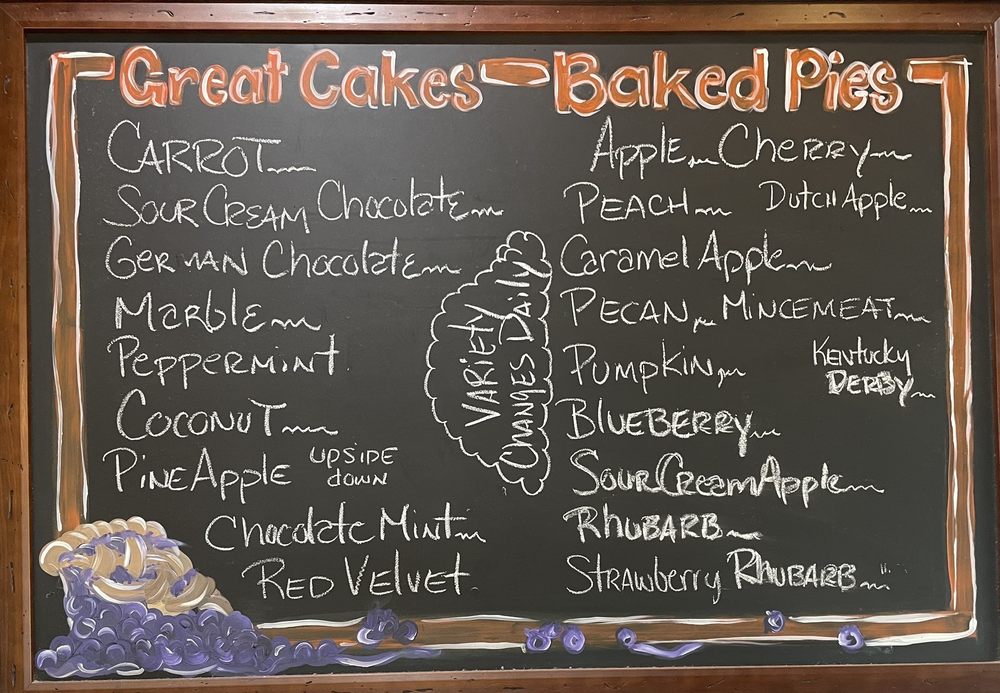 Great Cakes - Baked Pies
CARROT
SOUR CREAM Chocolate
GERMAN Chocolate
Marble
PEPPERMINT
COCONUT
PINEApple UPSIDE DOWN
Chocolate Mint
RED Velvet
VARIETY
CHANGES Daily
Apple, Cherry
PEACH DutcH Apple
Caramel Apple
PECAN, MINCEMEAT
PumpKin, Kentucky DERBY
BLUEBERRY
SOUR Cream Apple
RHUBARB
Strawberry RHUBARB